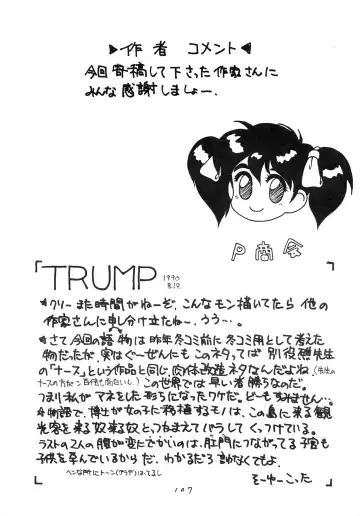 ▶作者 コメント◀
今回寄稿して下さった作家さんに
みんな感謝しましょー、
P商会
「TRUMP 1990 8.12 」
クリーまた時間がねーぞ、こんなモン描いてたら 他の
作家さんに申し分け立たねー、うう…。
さて今回の語 物は昨年冬コミ前に冬コミ用として考えた
物だったが 実はぐーぜんにも このネタってば 別役 先生
の「ナース」という作品と同じ肉体改造ネタなんだよね (先生の
ナースの方が 百倍も面白い。) この世界では早い者勝ちなのだ。
つまり私が マネをした形ろになったワケだ。どーもすいません…。
物語で、博士が女の子に移植するモノは、この島に来る観
光客を来る奴来る奴とっつかまえてバラしてくっつけている。
ラストの2人の腹が変にでかいのは、肛門につながってる子宮も
子供を孕んでいるからだ。わかるだろ 訳なくてもよ。
ヘンな所にトーン(グラデ)はってるし
そーゆーこった
107